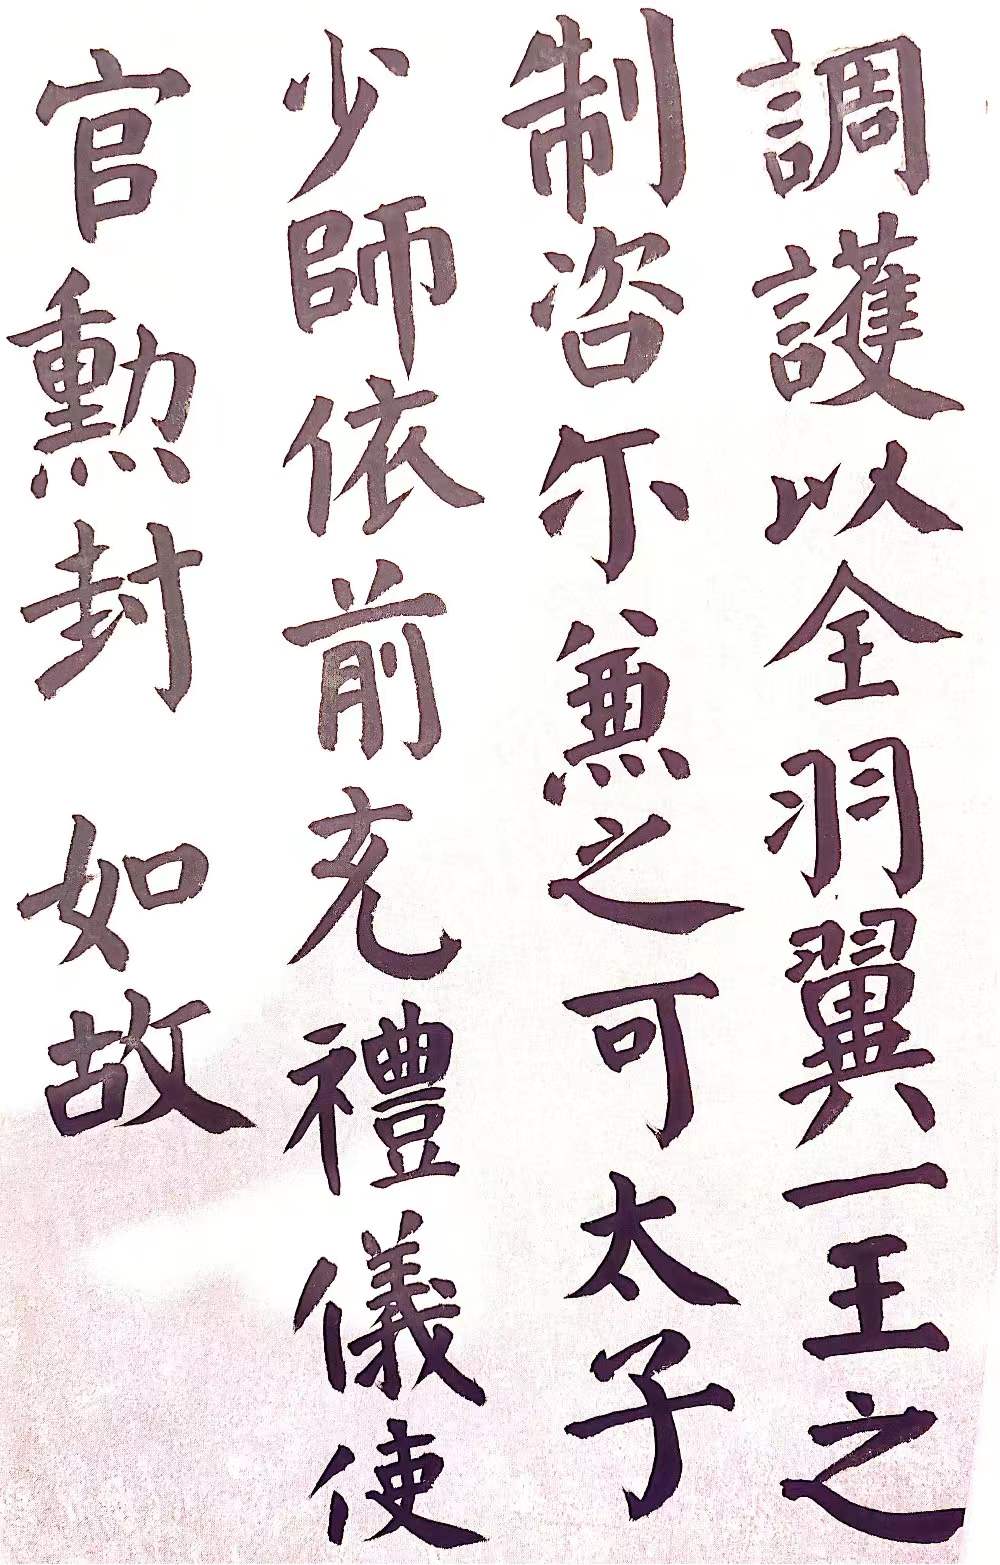 調護以全羽翼一王之
制咨尓兼之可太子
少師依前充禮儀使
官勳封 如故